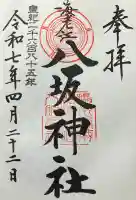 奉拝
八坂神社
皇紀二千六百八十五年
令和七年四月二十二日